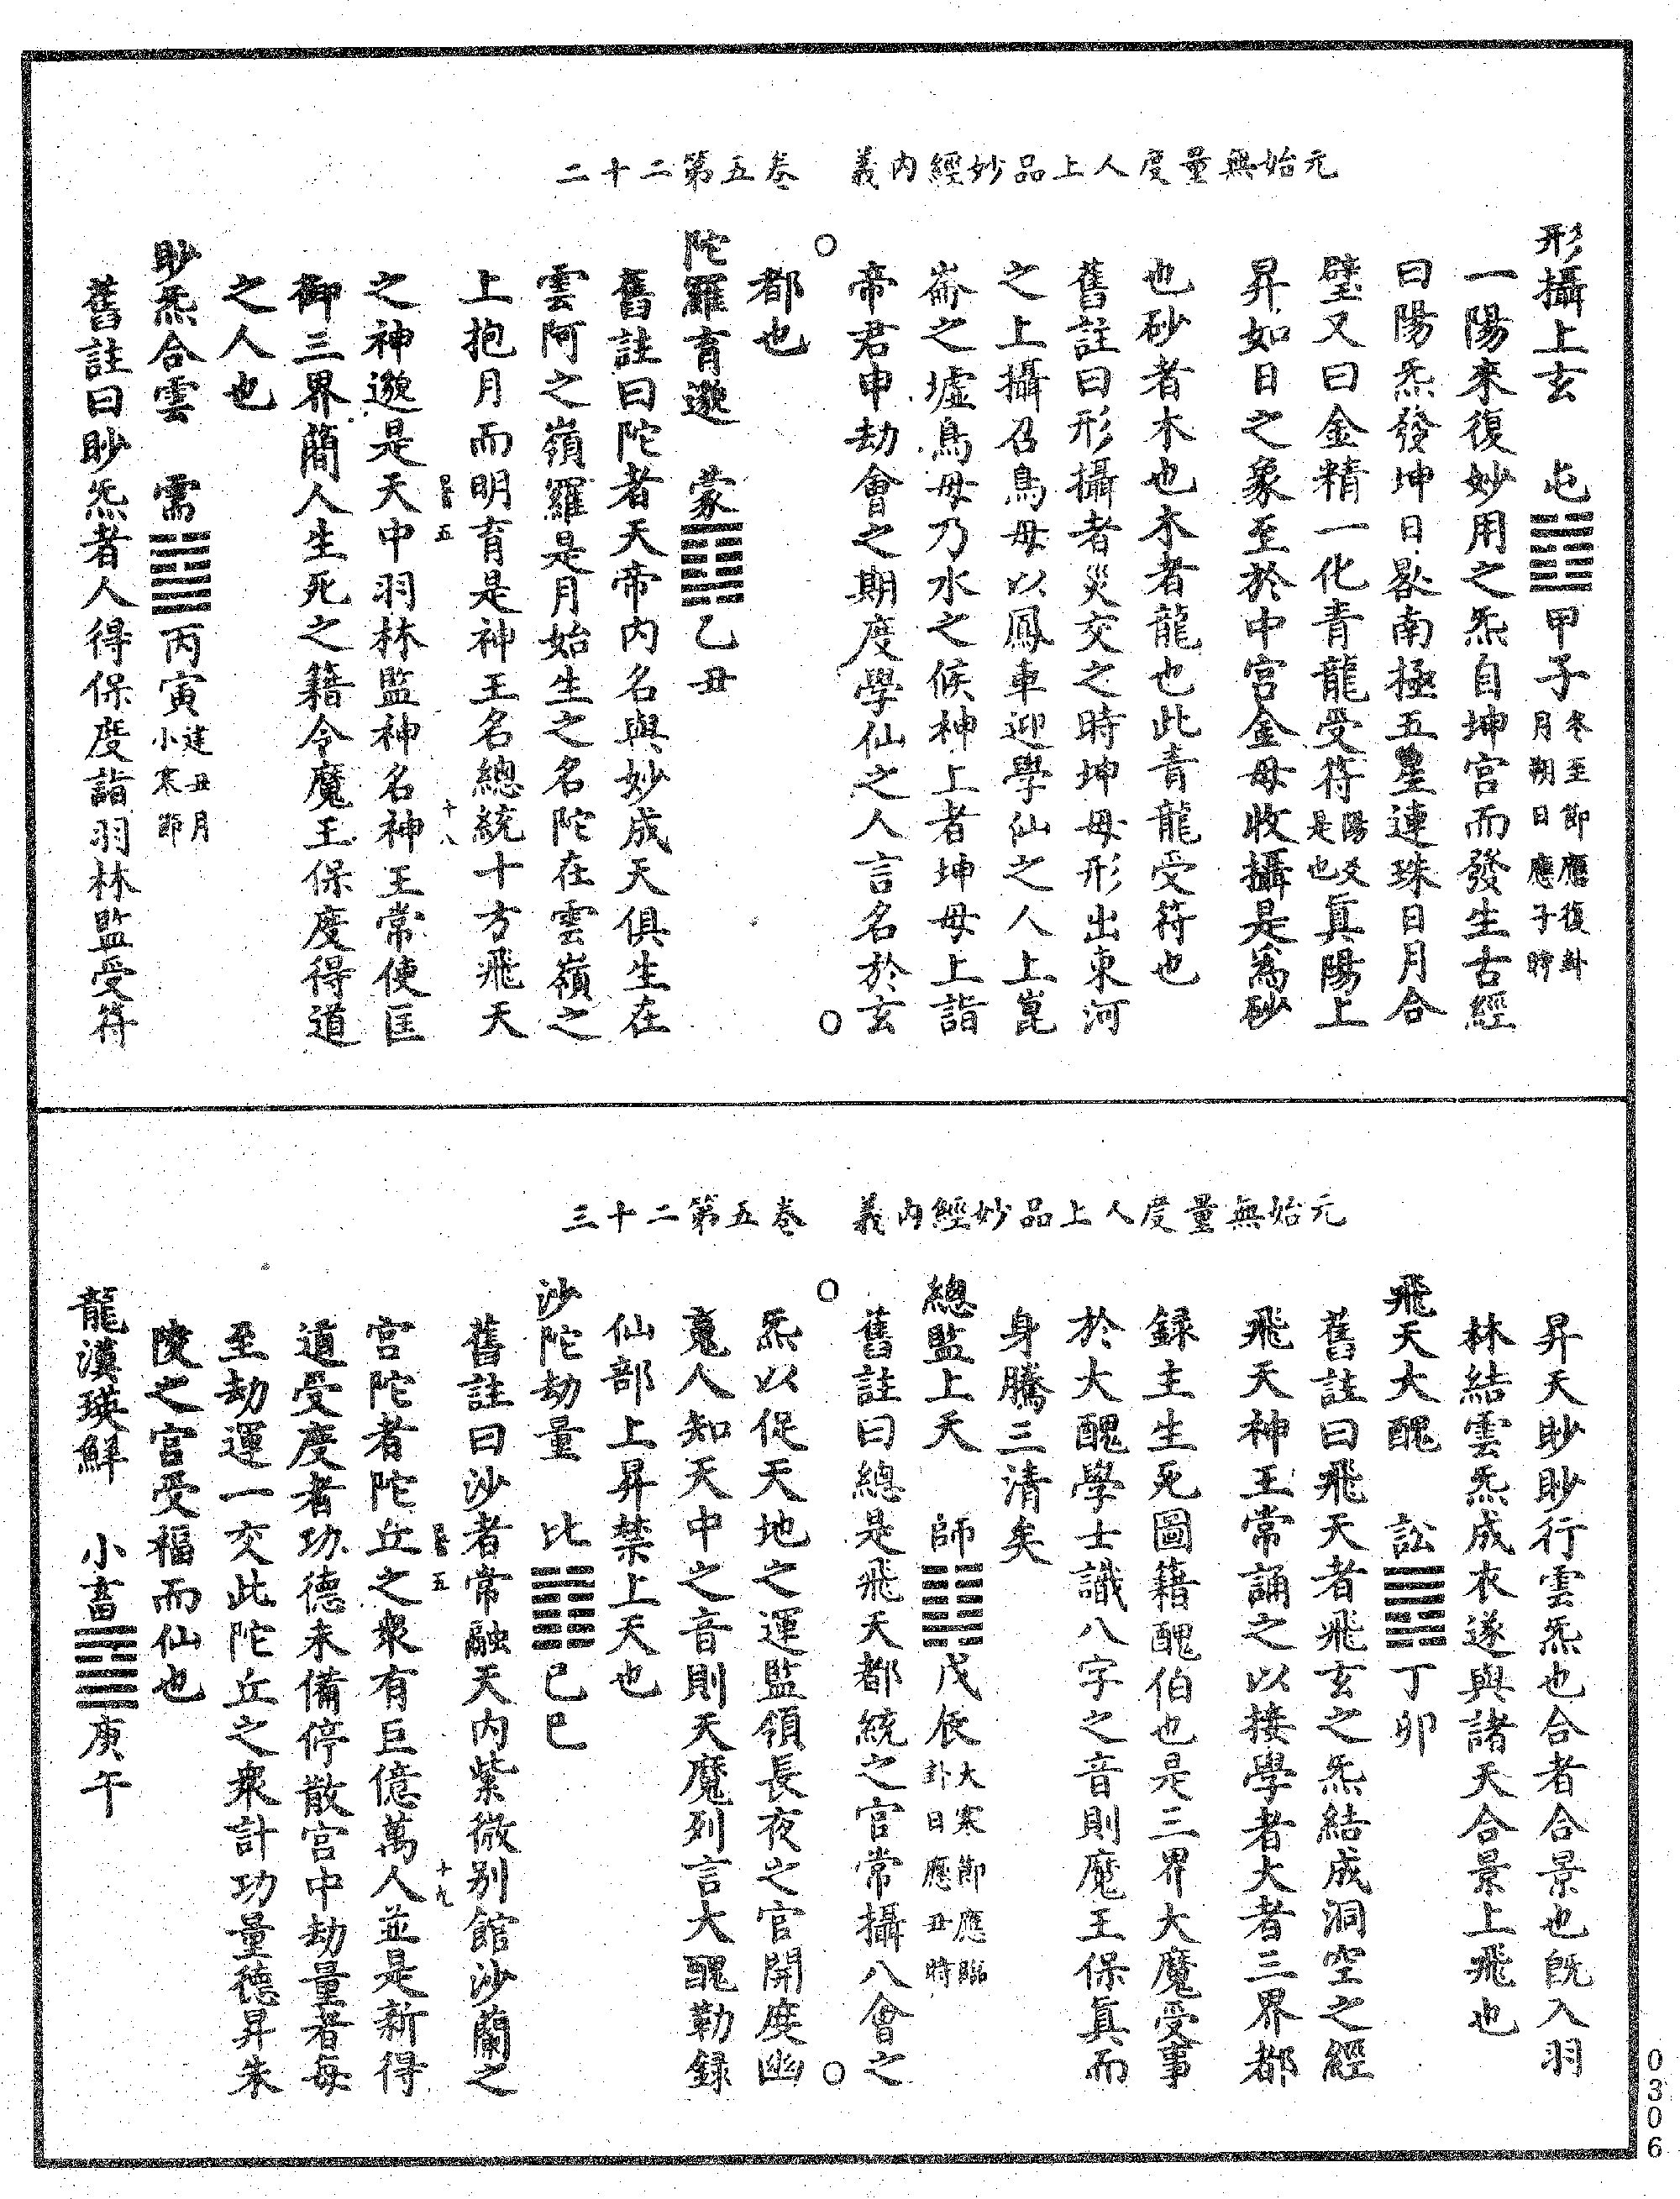 元始無量度人上品妙經內義　卷五第二十二
形攝上玄　屯䷂甲子冬至節應復卦月朔日應子時
一陽來復妙用之炁自坤宮而發生古經
曰陽炁發坤日晷南極五星連珠日月合
璧又曰金精一化青龍受符陽爻是也眞陽上
昇如日之象至於中宮金母收攝是爲砂
也砂者木也木者龍也此青龍受符也
舊註曰形攝者災交之時坤母形出東河
之上攝召鳥母以鳳車迎學仙之人上崑
崙之墟鳥母乃水之候神上者坤母上詣
帝君申劫會之期度學仙之人言名於玄
都也
陀羅育邈　蒙䷃乙丑
舊註曰陀者天帝內名與妙成天俱生在
雲阿之嶺羅是月始生之名陀在雲嶺之
上抱月而明育是神王名總統十方飛天
五　十八
之神邈是天中羽林監神名神王常使匡
御三界簡人生死之籍令魔王保度得道
之人也
眇炁合雲　需䷄丙寅建丑月小寒節
舊註曰眇炁者人得保度詣羽林監受符
元始無量度人上品妙經內義　卷五第二十三
昇天眇眇行雲炁也合者合景也旣入羽
林結雲炁成衣遂與諸天合景上飛也
飛天大醜　訟䷅丁卯
舊註曰飛天者飛玄之炁結成洞空之經
飛天神王常誦之以接學者大者三界都
録主生死圖籍醜伯也是三界大魔受事
於大醜學士識八字之音則魔王保眞而
身騰三清矣
總監上天　師䷆戊辰大寒節應臨卦日應丑時
舊註曰總是飛天都統之官常攝八會之
炁以促天地之運監領長夜之官開度幽
䰟人知天中之音則天魔列言大醜勒録
仙部上昇禁上天也
沙陀劫量　比䷇己巳
舊註曰沙者常融天內紫微别館沙蘭之
五　十九
宮陀者陀丘之衆有巨億萬人並是新得
道受度者功德未備停散宮中劫量者每
至劫運一交此陀丘之衆計功量德昇朱
陵之宮受福而仙也
龍漢瑛鮮　小畜䷈庚午
0306